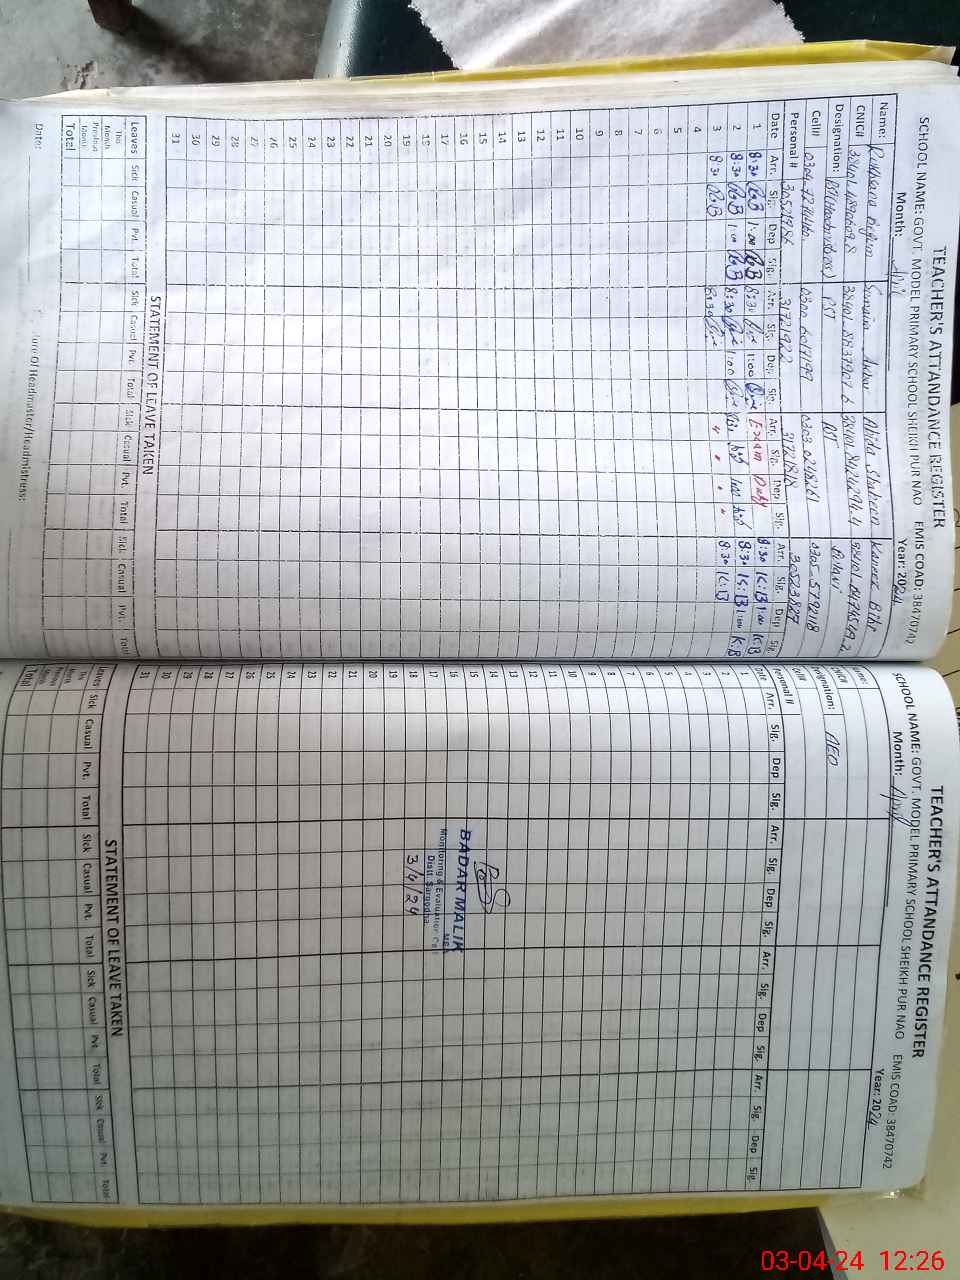 TEACHER'S ATTANDANCE REGISTER
SCHOOL NAME: GOVT. MODEL PRIMARY SCHOOL SHEIKH PUR NAO EMIS COAD: 38470742
Month: Year: 2024
Name: Rukhsana Begum Sumaira Akbar Abida Shaheen Kaneez Bibi
CNIC#
Designation: PST (Headmistress) PST PST
Cell# 0300 6017199 0303 0248261 0305 5792118
Personal # 30521986 31721922 31721818 30523827
Date Arr. Sig. Dep Sig. Arr. Sig. Dep. Sig. Arr. Sig. Dep Sig. Arr. Sig. Dep Sig.
1 8:30 RB 1:00 RB 8:30 1:00 Exam Duty 8:30 K:B 1:00 K:B
2 8:30 RB 1:00 RB 8:30 1:00 8:30 K:B 1:00 K:B
3 8:30 RB 8:30 " " " " 8:30 K:B
4
5
6
7
8
9
10
11
12
13
14
15
16
17
18
19
20
21
22
23
24
25
26
27
28
29
30
31
STATEMENT OF LEAVE TAKEN
Leaves Sick Casual Pvt. Total Sick Casual Pvt. Total Sick Casual Pvt. Total Sick Casual Pvt. Total
This Month
Previous Month
Total
Date: ture Of Headmaster/Headmistress:
TEACHER'S ATTANDANCE REGISTER
SCHOOL NAME: GOVT. MODEL PRIMARY SCHOOL SHEIKH PUR NAO EMIS COAD: 38470742
Month: April Year: 2024
Name:
CNIC#
Designation: AEO
Cell#
Personal #
Date Arr. Sig. Dep Sig. Arr. Sig. Dep Sig. Arr. Sig. Dep Sig. Arr. Sig. Dep Sig.
1
2
3
4
5
6
7
8
9
10
11
12
13
14
15
16
17
18
19
20
21
22
23
24
25
26
27
28
29
30
31
BADAR MALIK
MEA
Monitoring & Evaluation Cell
Distt Sargodha
3/4/24
STATEMENT OF LEAVE TAKEN
Leaves Sick Casual Pvt. Total Sick Casual Pvt. Total Sick Casual Pvt. Total Sick Casual Pvt. Total
This Month
Previous Month
Total
03-04-24 12:26